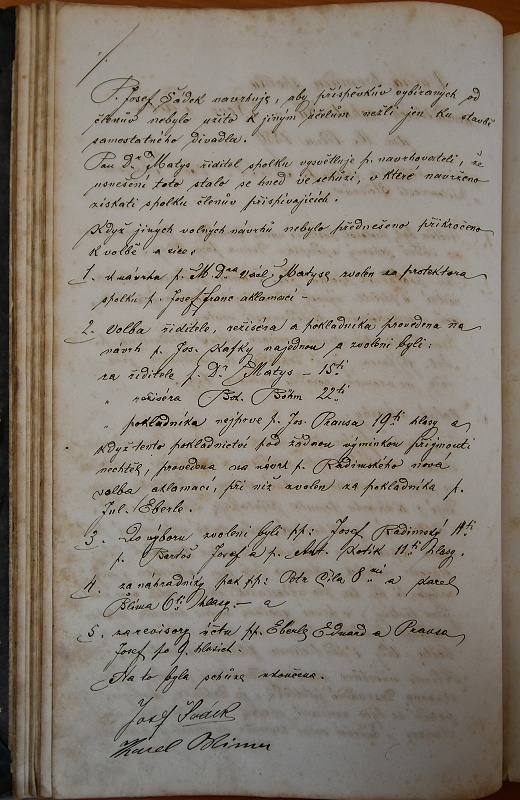 P. Josef Šádek navrhuje, aby příspěvkův vybíraných od
členův nebylo užito k jiným účelům nežli jen ku stavbě
samostatného divadla.
Pan Dr. Matys ředitel spolku vysvětluje p. navrhovateli, že
usnešení toto stalo se hned ve schůzi, v které navrženo
získati spolku členův přispívajících.
Když jiných volných návrhů nebylo předneseno přikročeno
k volbě a sice:
1. k návrhu p. M. Dra Václ. Matyse zvolen za protektora
spolku p. Josef Franc aklamací –
2. Volba ředitele, režiséra a pokladníka provedena na
návrh p. Jos. Kafky najednou a zvoleni byli:
za ředitele p. Dr. Matys – 15ti
" režiséra Böhm 22ti
" pokladníka nejprve p. Jos. Prausa 19ti hlasy a
když tento pokladnictví pod žádnou výmínkou přijmouti
nechtěl, provedena na návrh p. Radimského nova
volba aklamací, při níž zvolen za pokladníka p.
Jul. Eberle.
3. Do výboru zvoleni byli pp: Josef Radimský 11ti
p. Bartoš Josef a p. Ant. Kotík 11ti hlasy.
4. za náhradníky pak pp: Petr Cila 8mi a Karel
Blima 6ti hlasy – a
5. za revisory účtu pp. Eberle Eduard a Prausa
Josef po 9 hlasích.
Na to byla schůze skončena.
Josef Šádek
Karel Blima